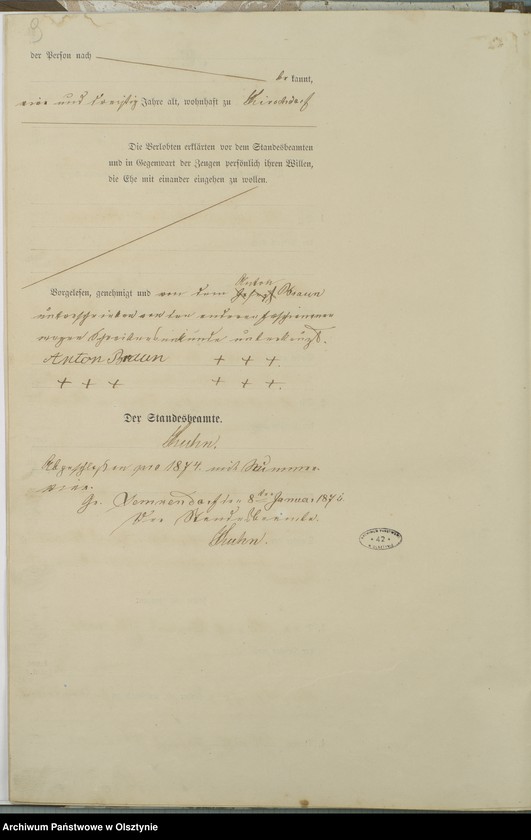 der Person nach
be kannt,
vier und dreißig Jahre alt, wohnhaft zu Kirschdorf
Die Verlobten erklärten vor dem Standesbeamten
und in Gegenwart der Zeugen persönlich ihren Willen,
die Ehe mit einander eingehen zu wollen.
Anton
Vorgelesen, genehmigt und von dem Joseph Braun
unterschrieben von den anderen Erschienenen
wegen Schreibensunkunde unterkreuzt.
Anton Braun + + +
+ + + + + +
Der Standesbeamte.
Kuhn.
Abgeschlossen pro 1874 mit Nummer
vier.
Gr. den 8ten Januar 1875
Der Standesbeamte.
Kuhn.
42
Archiwum Państwowe w Olsztynie